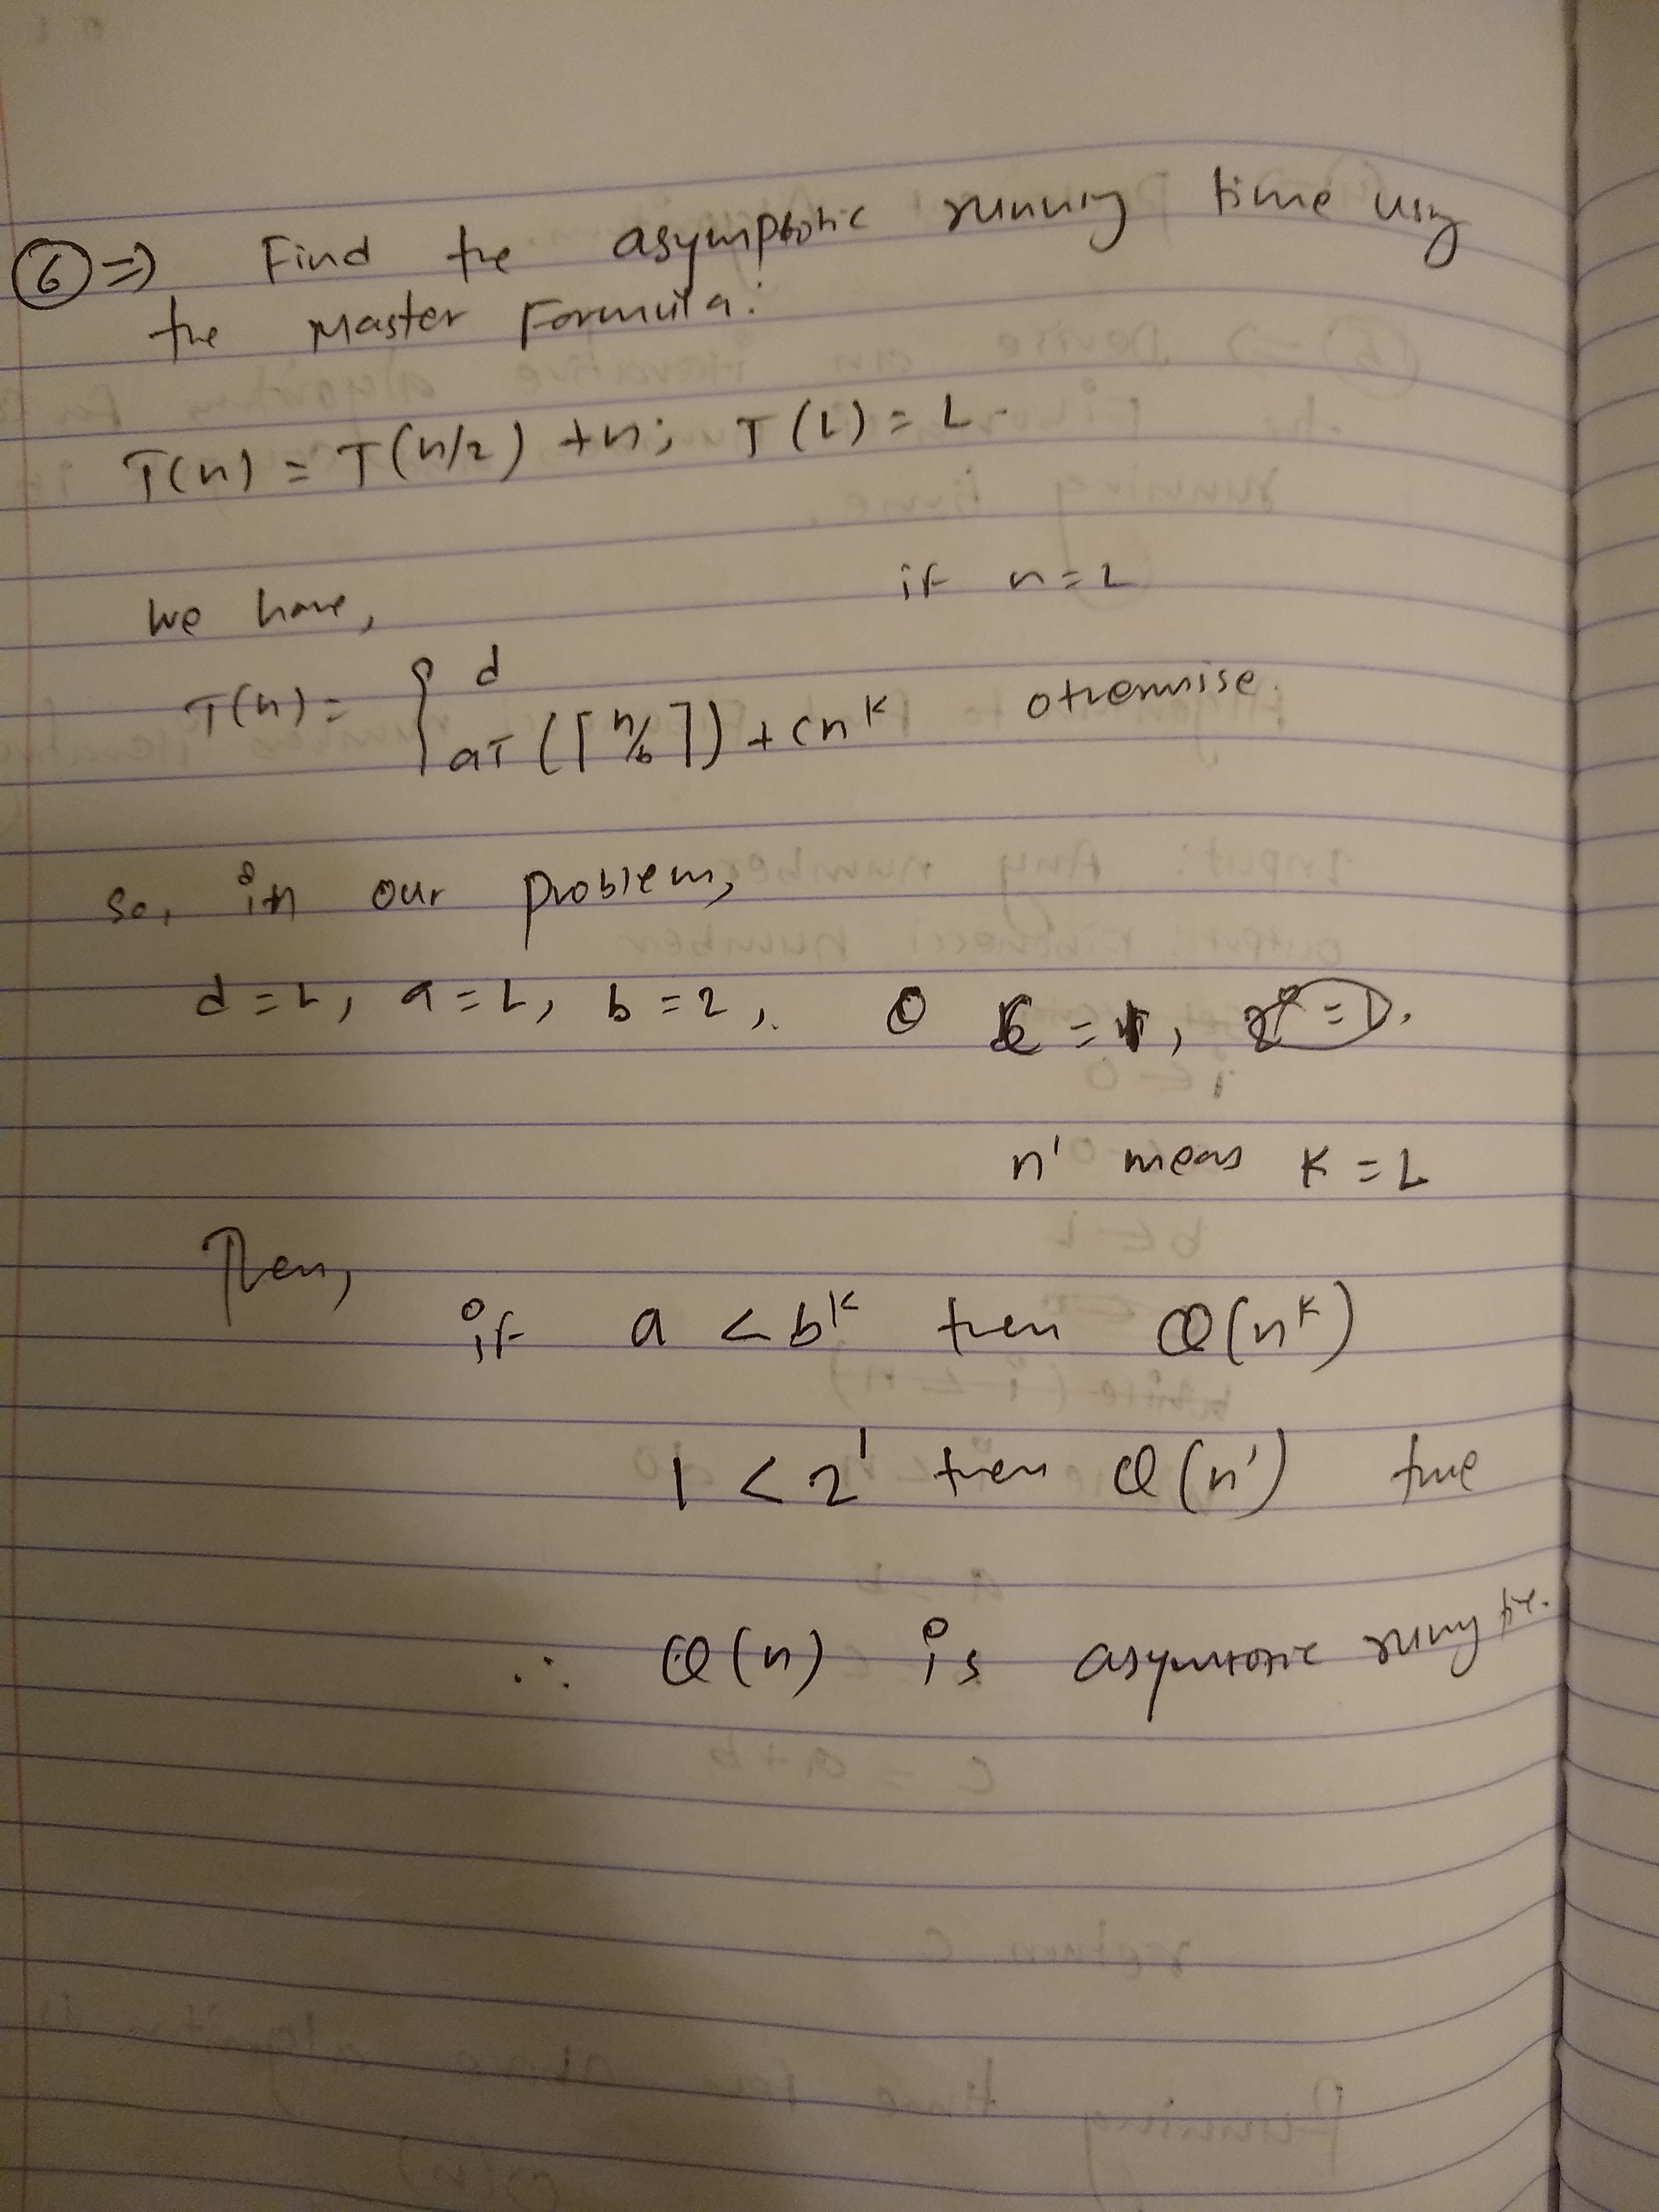 ⑥ ⇒ Find the asymptotic running time using
the Master Formula:
T(n) = T(n/2) + n; T(1) = 1.
We have, if n = 1
T(n) = { d
aT(⌈n/b⌉) + cn^k otherwise.
So, in our problem,
d = 1, a = 1, b = 2, c = 1,
n^1 means k = 1
Then,
if a < b^k then Θ(n^k)
1 < 2^1 then Θ(n^1) true
∴ Θ(n) is asymptotic running time.